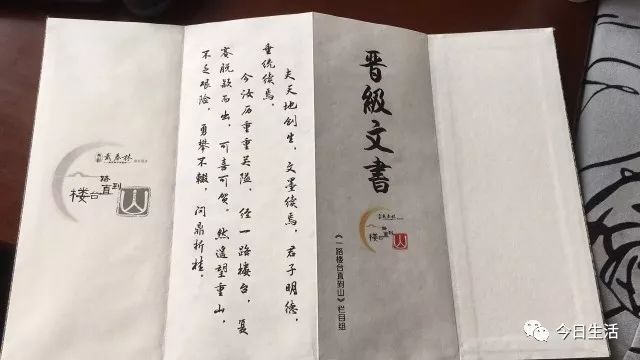 晋级文書
戴春林
一路楼台直到山
《一路楼台直到山》栏目组
夫天地创生，文墨续焉，君子明德，
垂统续焉。
今汝历重重关隘，经一路楼台，复
赛脱颖而出，可喜可贺。然遥望重山，
不乏艰险，勇攀不辍，问鼎折桂。
戴春林
一路楼台直到山
今日生活